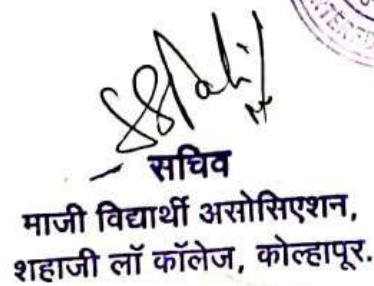 सचिव
माजी विद्यार्थी असोसिएशन,
शहाजी लॉ कॉलेज, कोल्हापूर.